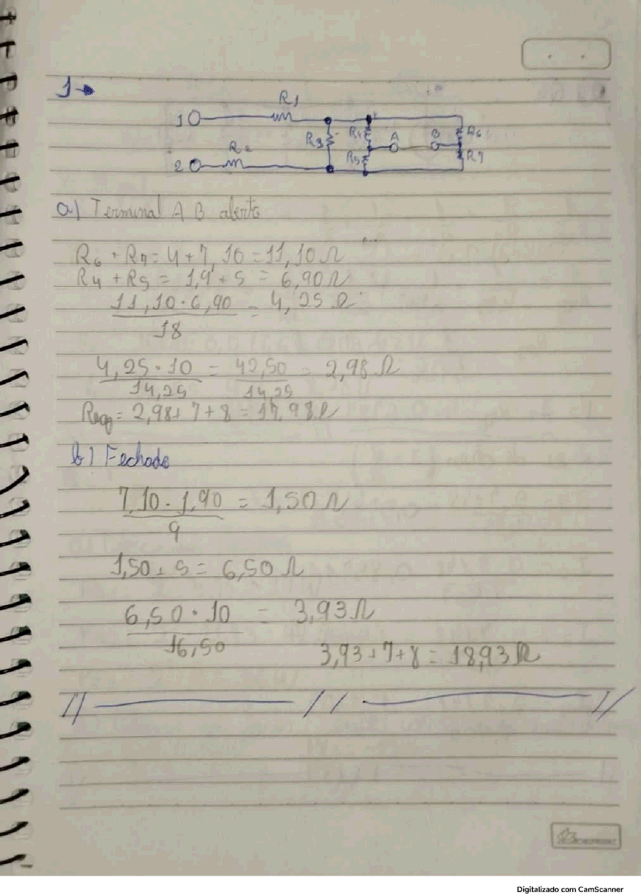 1→
R1
1
R3
R4
A
B
R6
R2
R5
R7
2
a) Terminal A B aberto
R6 + R7 = 4 + 7,10 = 11,10 Ω
R4 + R5 = 1,9 + 5 = 6,90 Ω
11,10 · 6,90 = 4,25 Ω
18
4,25 · 10 = 42,50 = 2,98 Ω
14,25 14,25
Req = 2,98 + 7 + 8 = 17,98 Ω
b) Fechado
7,10 · 1,90 = 1,50 Ω
9
1,50 + 5 = 6,50 Ω
6,50 · 10 = 3,93 Ω
16,50
3,93 + 7 + 8 = 18,93 Ω
Digitalizado com CamScanner